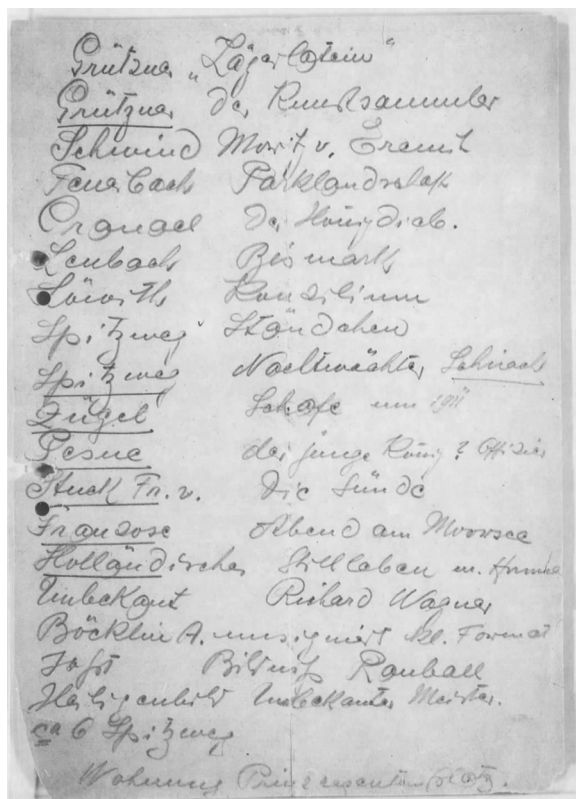 Grützner „Jägerlatein“
Grützner der Kunstsammler
Schwind Moritz v. Eremit
Feuerbach Parklandschaft
Cranach Der Honigdieb.
Lenbach Bismark
Löwith Konsilium
Spitzweg Ständchen
Spitzweg Nachtwächter Schirach
Zügel Schafe um 1911
Pesne der junge König? Offizier
Stuck Fr. v. Die Sünde
Franzose Abend am Moorsee
Holländischer Stilleben m. Hummer
Unbekant Richard Wagner
Böcklin A. unsigniert kl. Format
Bildniss
Heiligenbild Unbekanter Meister.
ca 6 Spitzweg
Wohnung Prinzregentenplatz.